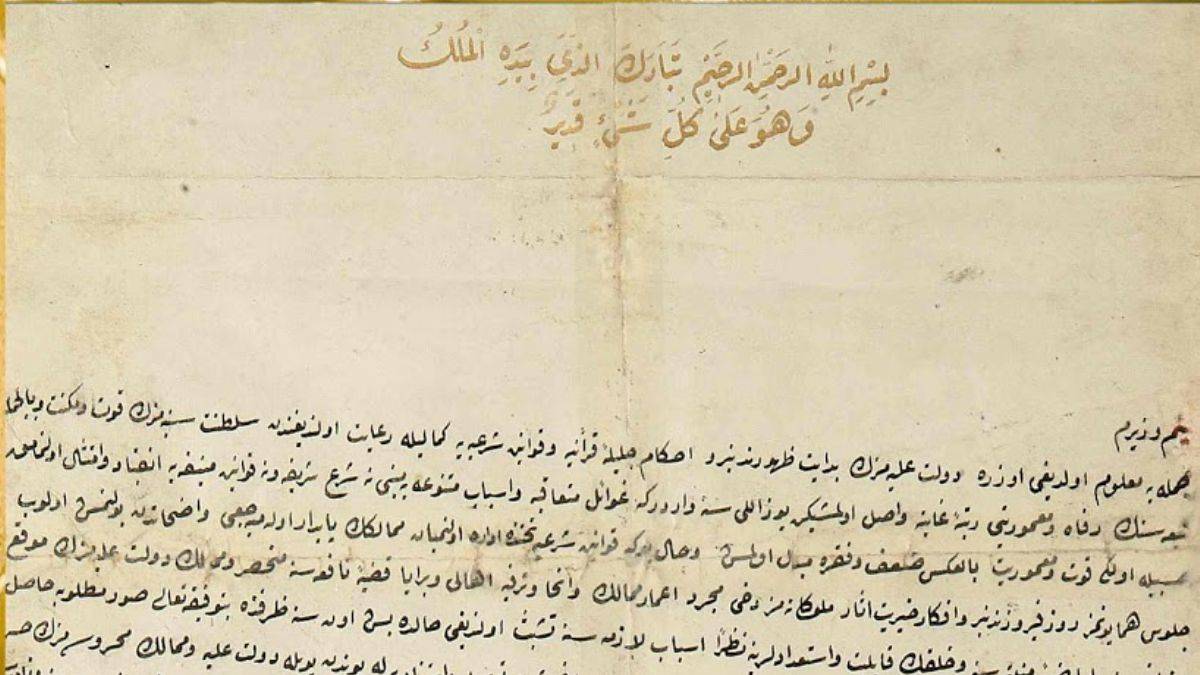 بِسْمِ اللهِ الرَحْمٰنِ الرَحِيْمِ تَبَارَكَ الَّذِي بِيَدِهِ الْمُلْكُ
وَهُوَ عَلٰى كُلِّ شَيْءٍ قَدِيرٌ
بنم وزيرم
جمله يه معلوم اولديغى اوزره دولت عليه مزك بدايت ظهورندنبرو احكام جليلۀ قرآنيه و قوانين شرعيه يه كماليله رعايت اولنديغندن سلطنت سنيه مزك قوت ومكنت وبالجمله
تبعه سنك رفاه ومعموريتى رتبۀ غايته واصل اولمشيكن يوز اللى سنه واردركه غوائل متعاقبه واسباب متنوعه يه مبنى نه شرع شريفه ونه قوانين منيفه يه انقياد وامتثال اولنمامق
حسبيله اولكى قوت ومعموريت بالعكس ضعف وفقره مبدل اولمش وحال بوكه قوانين شرعيه تحتنده اداره اولنميان ممالكك پايدار اوله ميه جغى واضحاتدن بولنمش اولوب
جلوس همايونمز روز فيروزندنبرو افكار خيريت آثار ملوكانه مز دخى مجرد اعمار ممالك وانحا وترفيه اهالى وبرايا قضيۀ نافعه سنه منحصر وممالك دولت عليه مزك موقع
وخلقك قابليت واستعدادلرينه نظراً اسباب لازمه سنه تشبث اولنديغى حالده بش اون سنه ظرفنده بتوفيقه تعالى صور مطلوبه حاصل
بوندن بويله دولت عليه وممالك محروسه مزك حسن